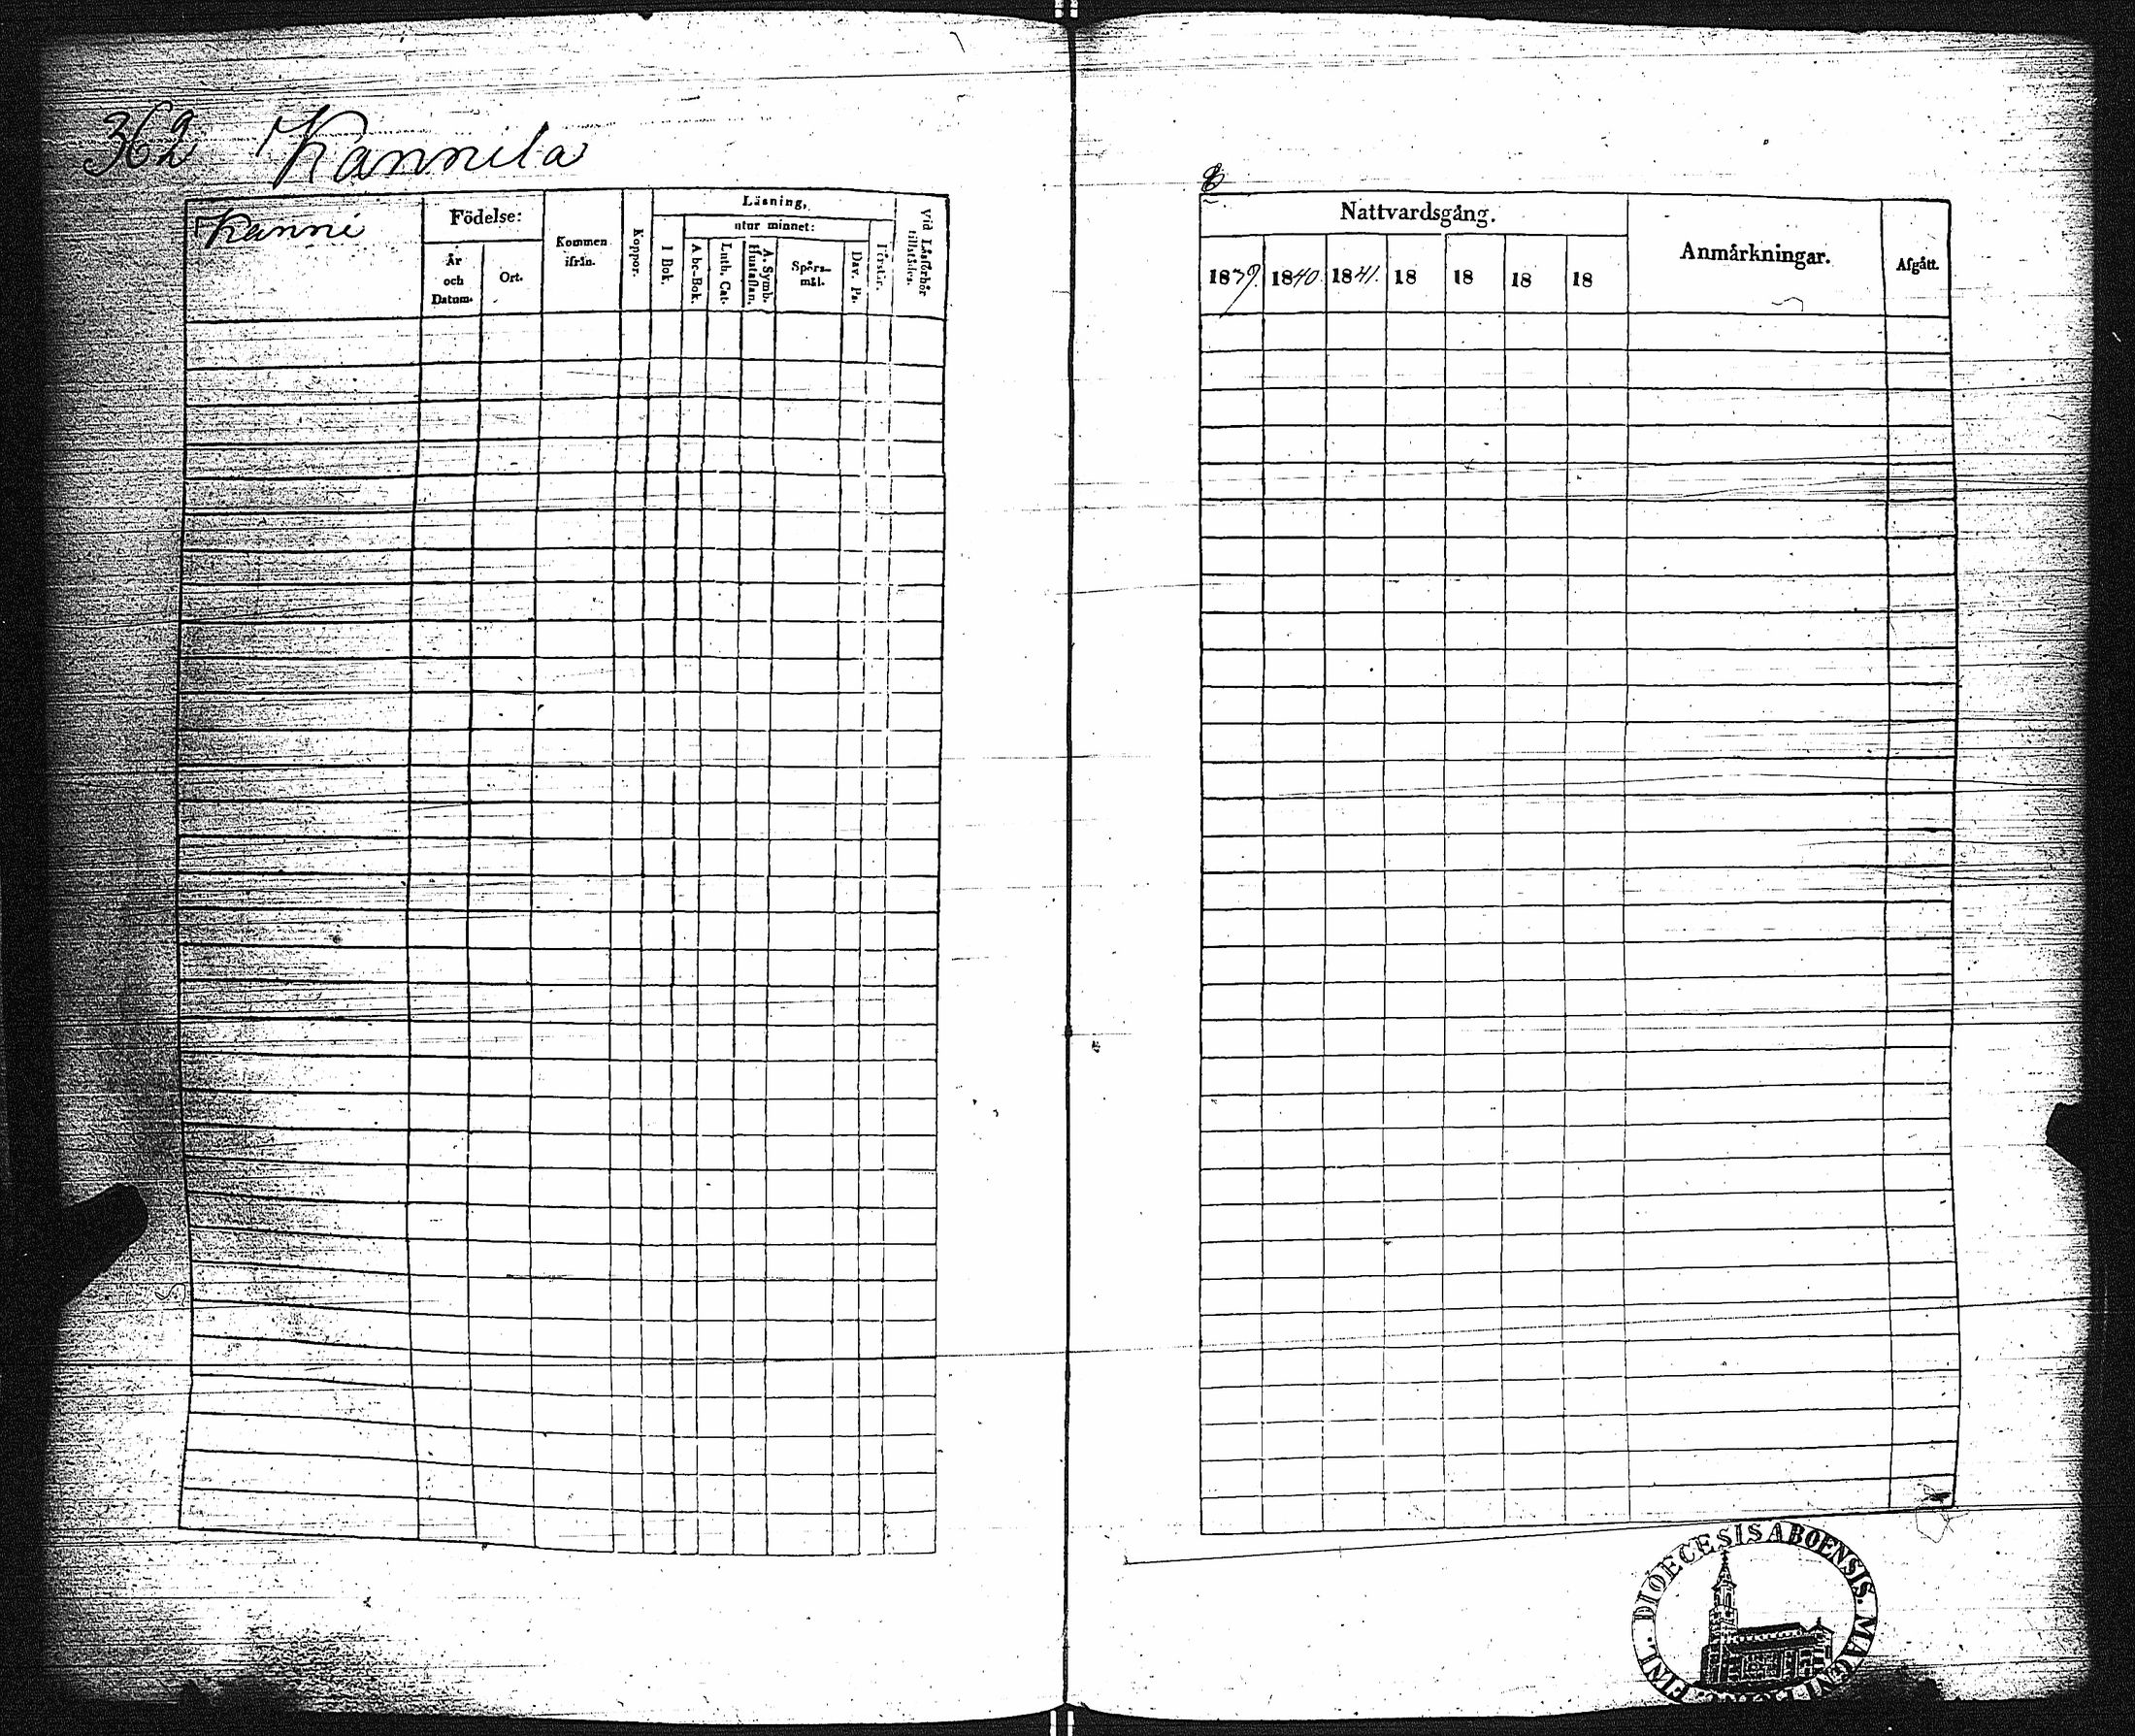 362 Kannila
Kanni
Födelse:
År
och
Datum.
Ort.
Kommen
ifrån.
Koppor.
Läsning,
I Bok.
utur minnet:
Abc-Bok.
Luth. Cat.
A. Symb.
Hustaflan.
Spörs-
mål.
Dav. Ps.
Förstår.
Vid Läsförhör
tillstådes.
Nattvardsgång.
1839. 1840. 1841. 18 18 18 18
Anmärkningar.
Afgått.
DIOECESIS ABOENSIS. MAGNI